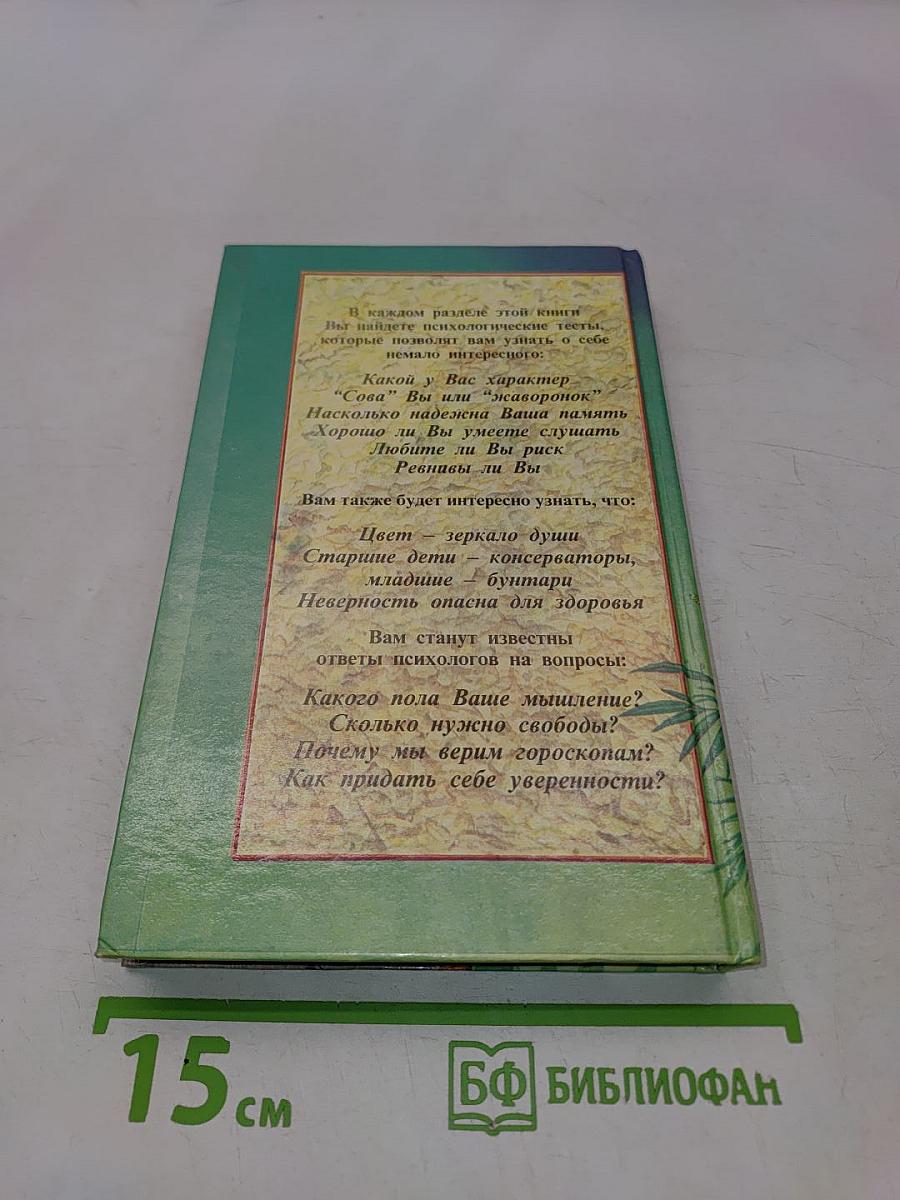 В каждом разделе этой книги
Вы найдете психологические тесты,
которые позволят вам узнать о себе
немало интересного:
Какой у Вас характер
“Сова” Вы или “жаворонок”
Насколько надежна Ваша память
Хорошо ли Вы умеете слушать
Любите ли Вы риск
Ревнивы ли Вы
Вам также будет интересно узнать, что:
Цвет – зеркало души
Старшие дети – консерваторы,
младшие – бунтари
Неверность опасна для здоровья
Вам станут известны
ответы психологов на вопросы:
Какого пола Ваше мышление?
Сколько нужно свободы?
Почему мы верим гороскопам?
Как придать себе уверенности?
15 см
БФ БИБЛИОФАН